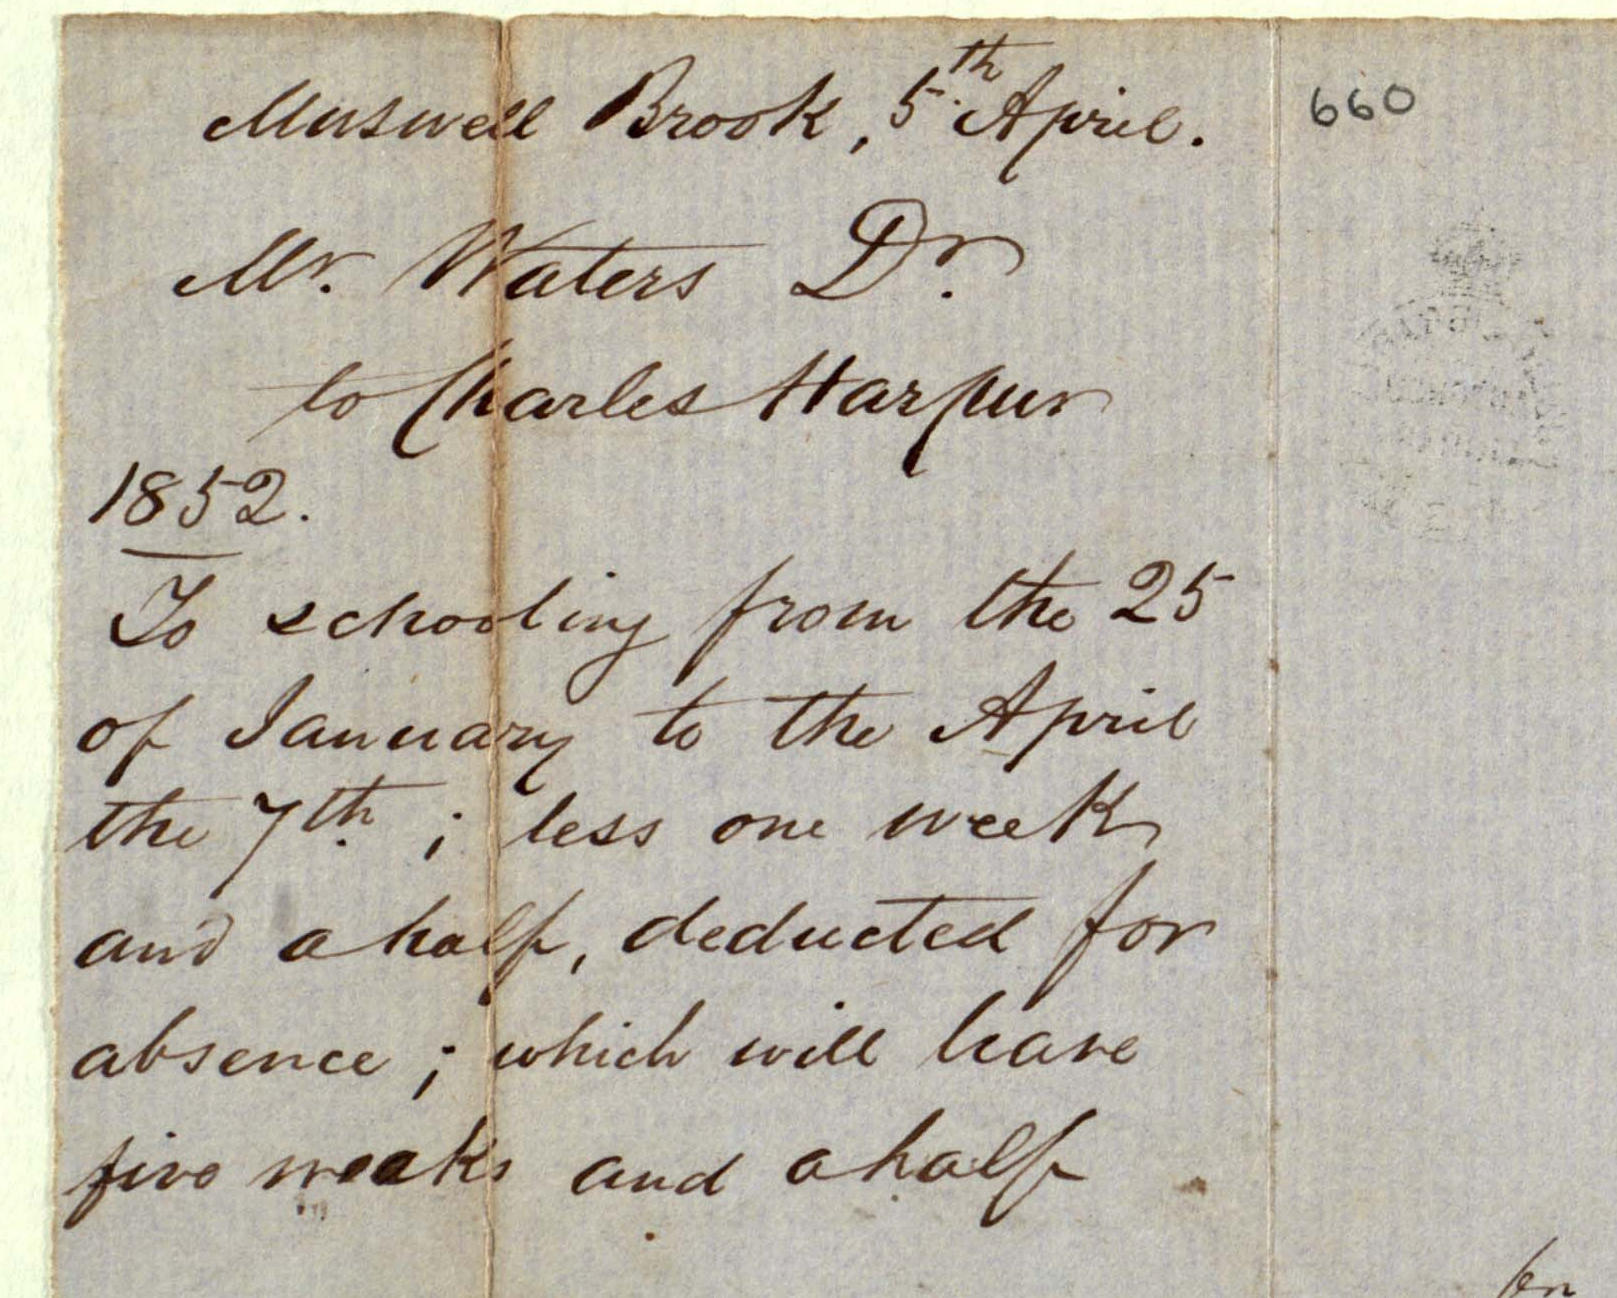 Muswell Brook, 5th. April.
660
Mr. Waters Dr.
to Charles Harpur
1852.
To schooling from the 25
of January to the April
the 7th. ; less one week
and a half, deducted for
absence ; which will leave
five weeks and a half